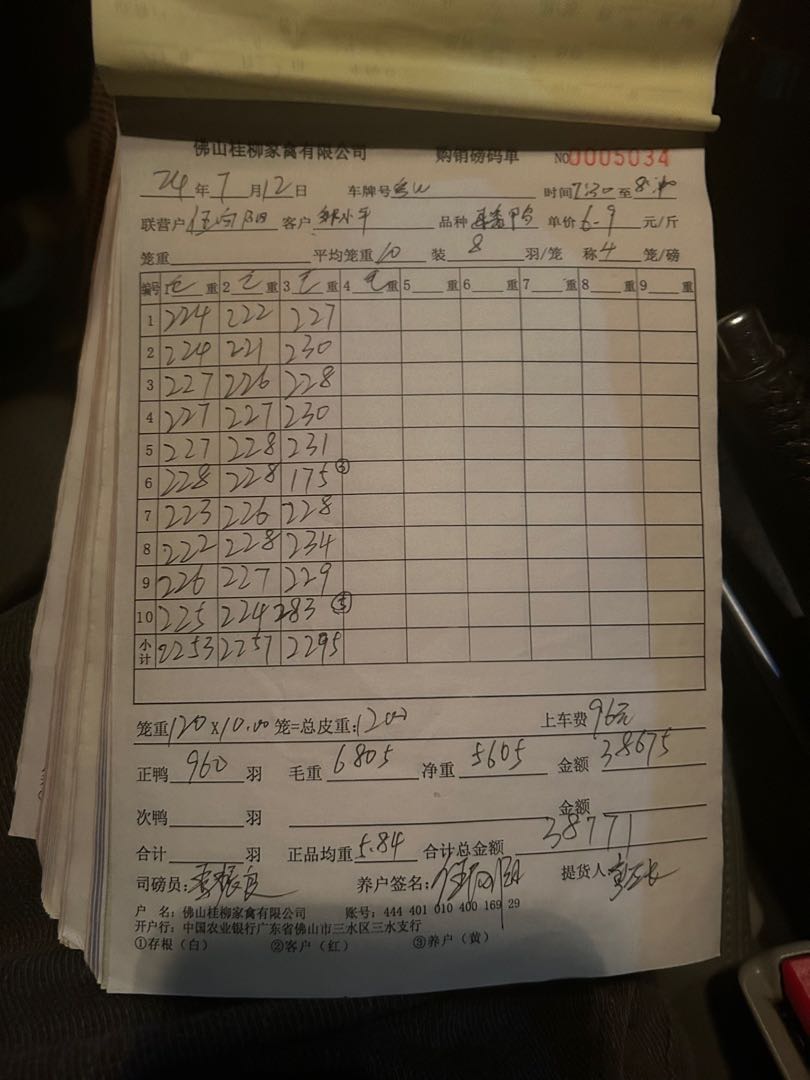 佛山桂柳家禽有限公司 购销磅码单 NO0005034
24年7月12日 车牌号 时间7:30至8:
联营户 客户 品种 单价6-9元/斤
笼重 平均笼重10 装8羽/笼 称4笼/磅
编号 1毛重 2毛重 3毛重 4毛重 5重 6重 7重 8重 9重
1 224 222 227
2 224 221 230
3 227 226 228
4 227 227 230
5 227 228 231
6 228 228 175③
7 223 226 228
8 222 228 234
9 226 227 229
10 225 224 283⑤
小计 2253 2257 2295
笼重120X10.00笼=总皮重:1200 上车费96元
正鸭960羽 毛重6805 净重5605 金额38675
次鸭 羽 金额
合计 羽 正品均重5.84 合计总金额38771
司磅员: 养户签名: 提货人
户 名:佛山桂柳家禽有限公司 账号:444 401 010 400 169 29
开户行:中国农业银行广东省佛山市三水区三水支行
①存根(白) ②客户(红) ③养户(黄)